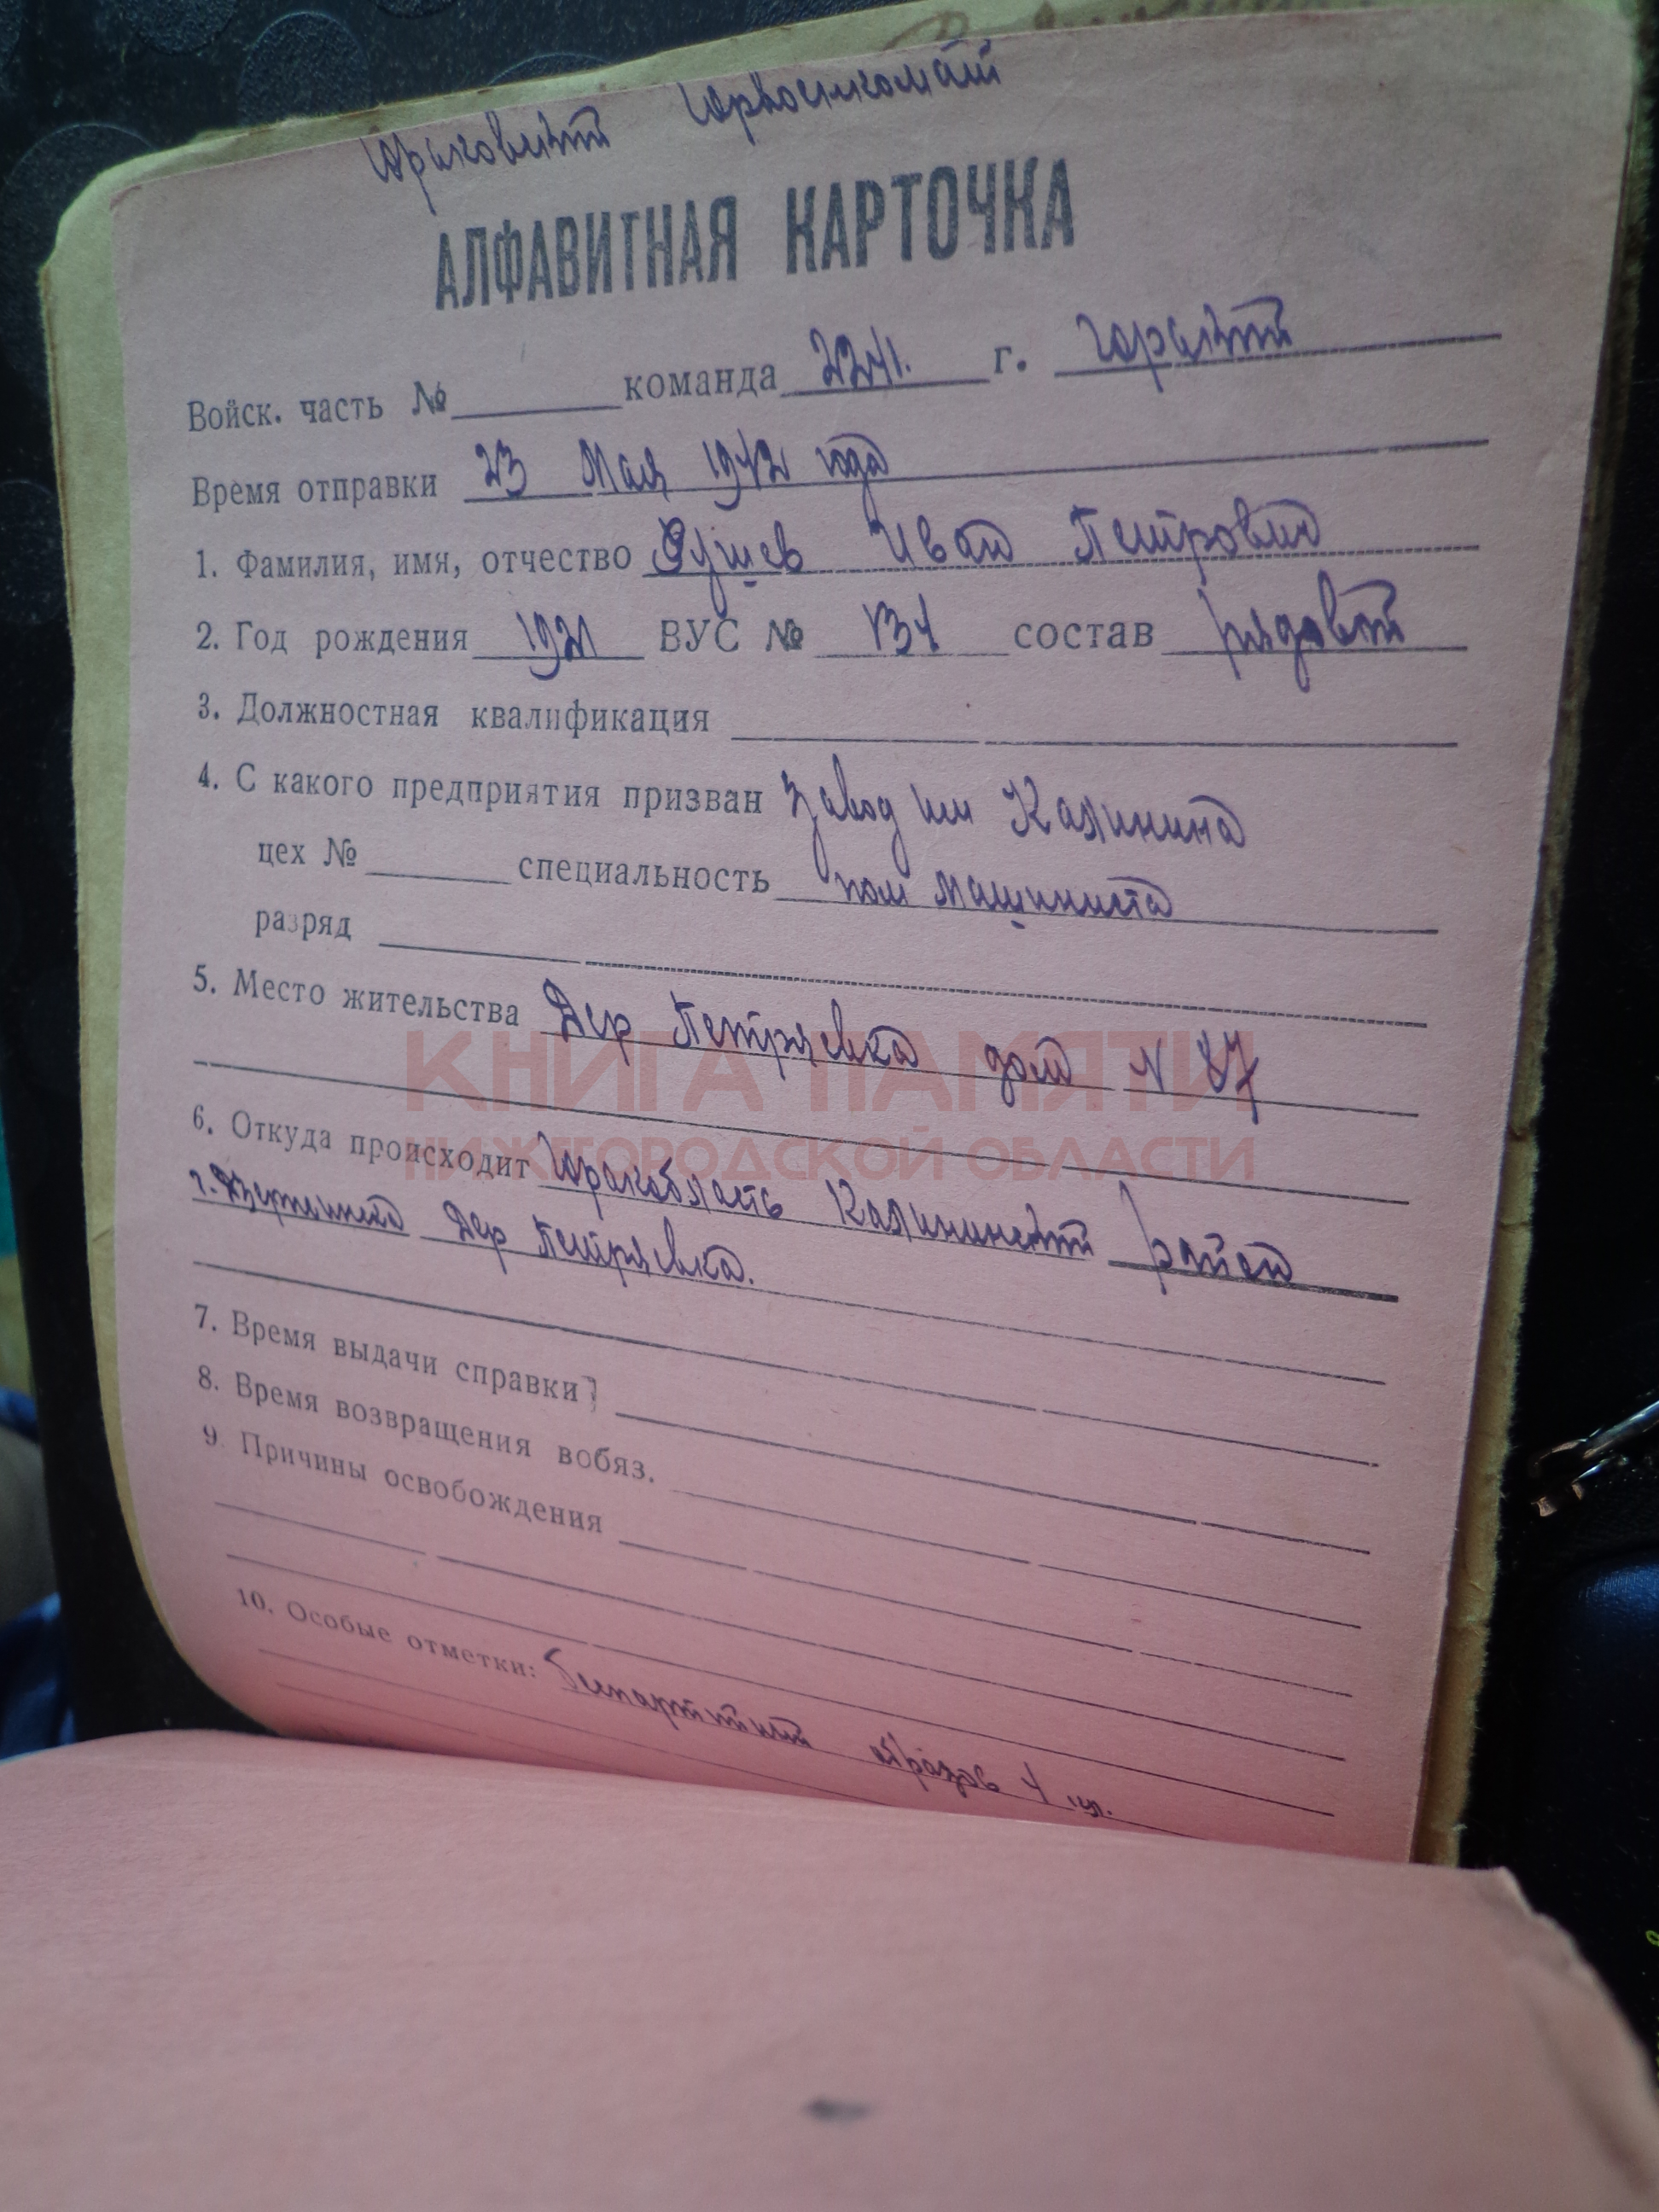 Горьковский Горвоенкомат
АЛФАВИТНАЯ КАРТОЧКА
Войск. часть № команда 2241. г. Горький
Время отправки 23 Мая 1942 года
1. Фамилия, имя, отчество Иван Петрович
2. Год рождения 1921 ВУС № 134 состав рядовой
3. Должностная квалификация
4. С какого предприятия призван Завод им Калинина
цех № специальность пом машиниста
разряд
5. Место жительства Дер Петряевка дом N 87
КНИГА ПАМЯТИ
НИЖЕГОРОДСКОЙ ОБЛАСТИ
6. Откуда происходит Горьк область Калининский район
г. Дзержинска Дер Петряевка.
7. Время выдачи справки
8. Время возвращения вобяз.
9. Причины освобождения
10. Особые отметки: беспартийный образов 4 кл.